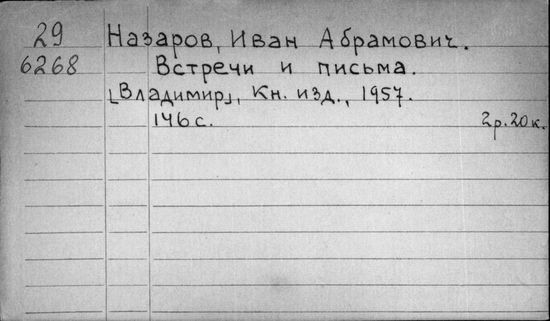 29 Назаров, Иван Абрамович.
6268 Встречи и письма.
[Владимир], Кн. изд., 1957.
146 с. 2 р. 20 к.